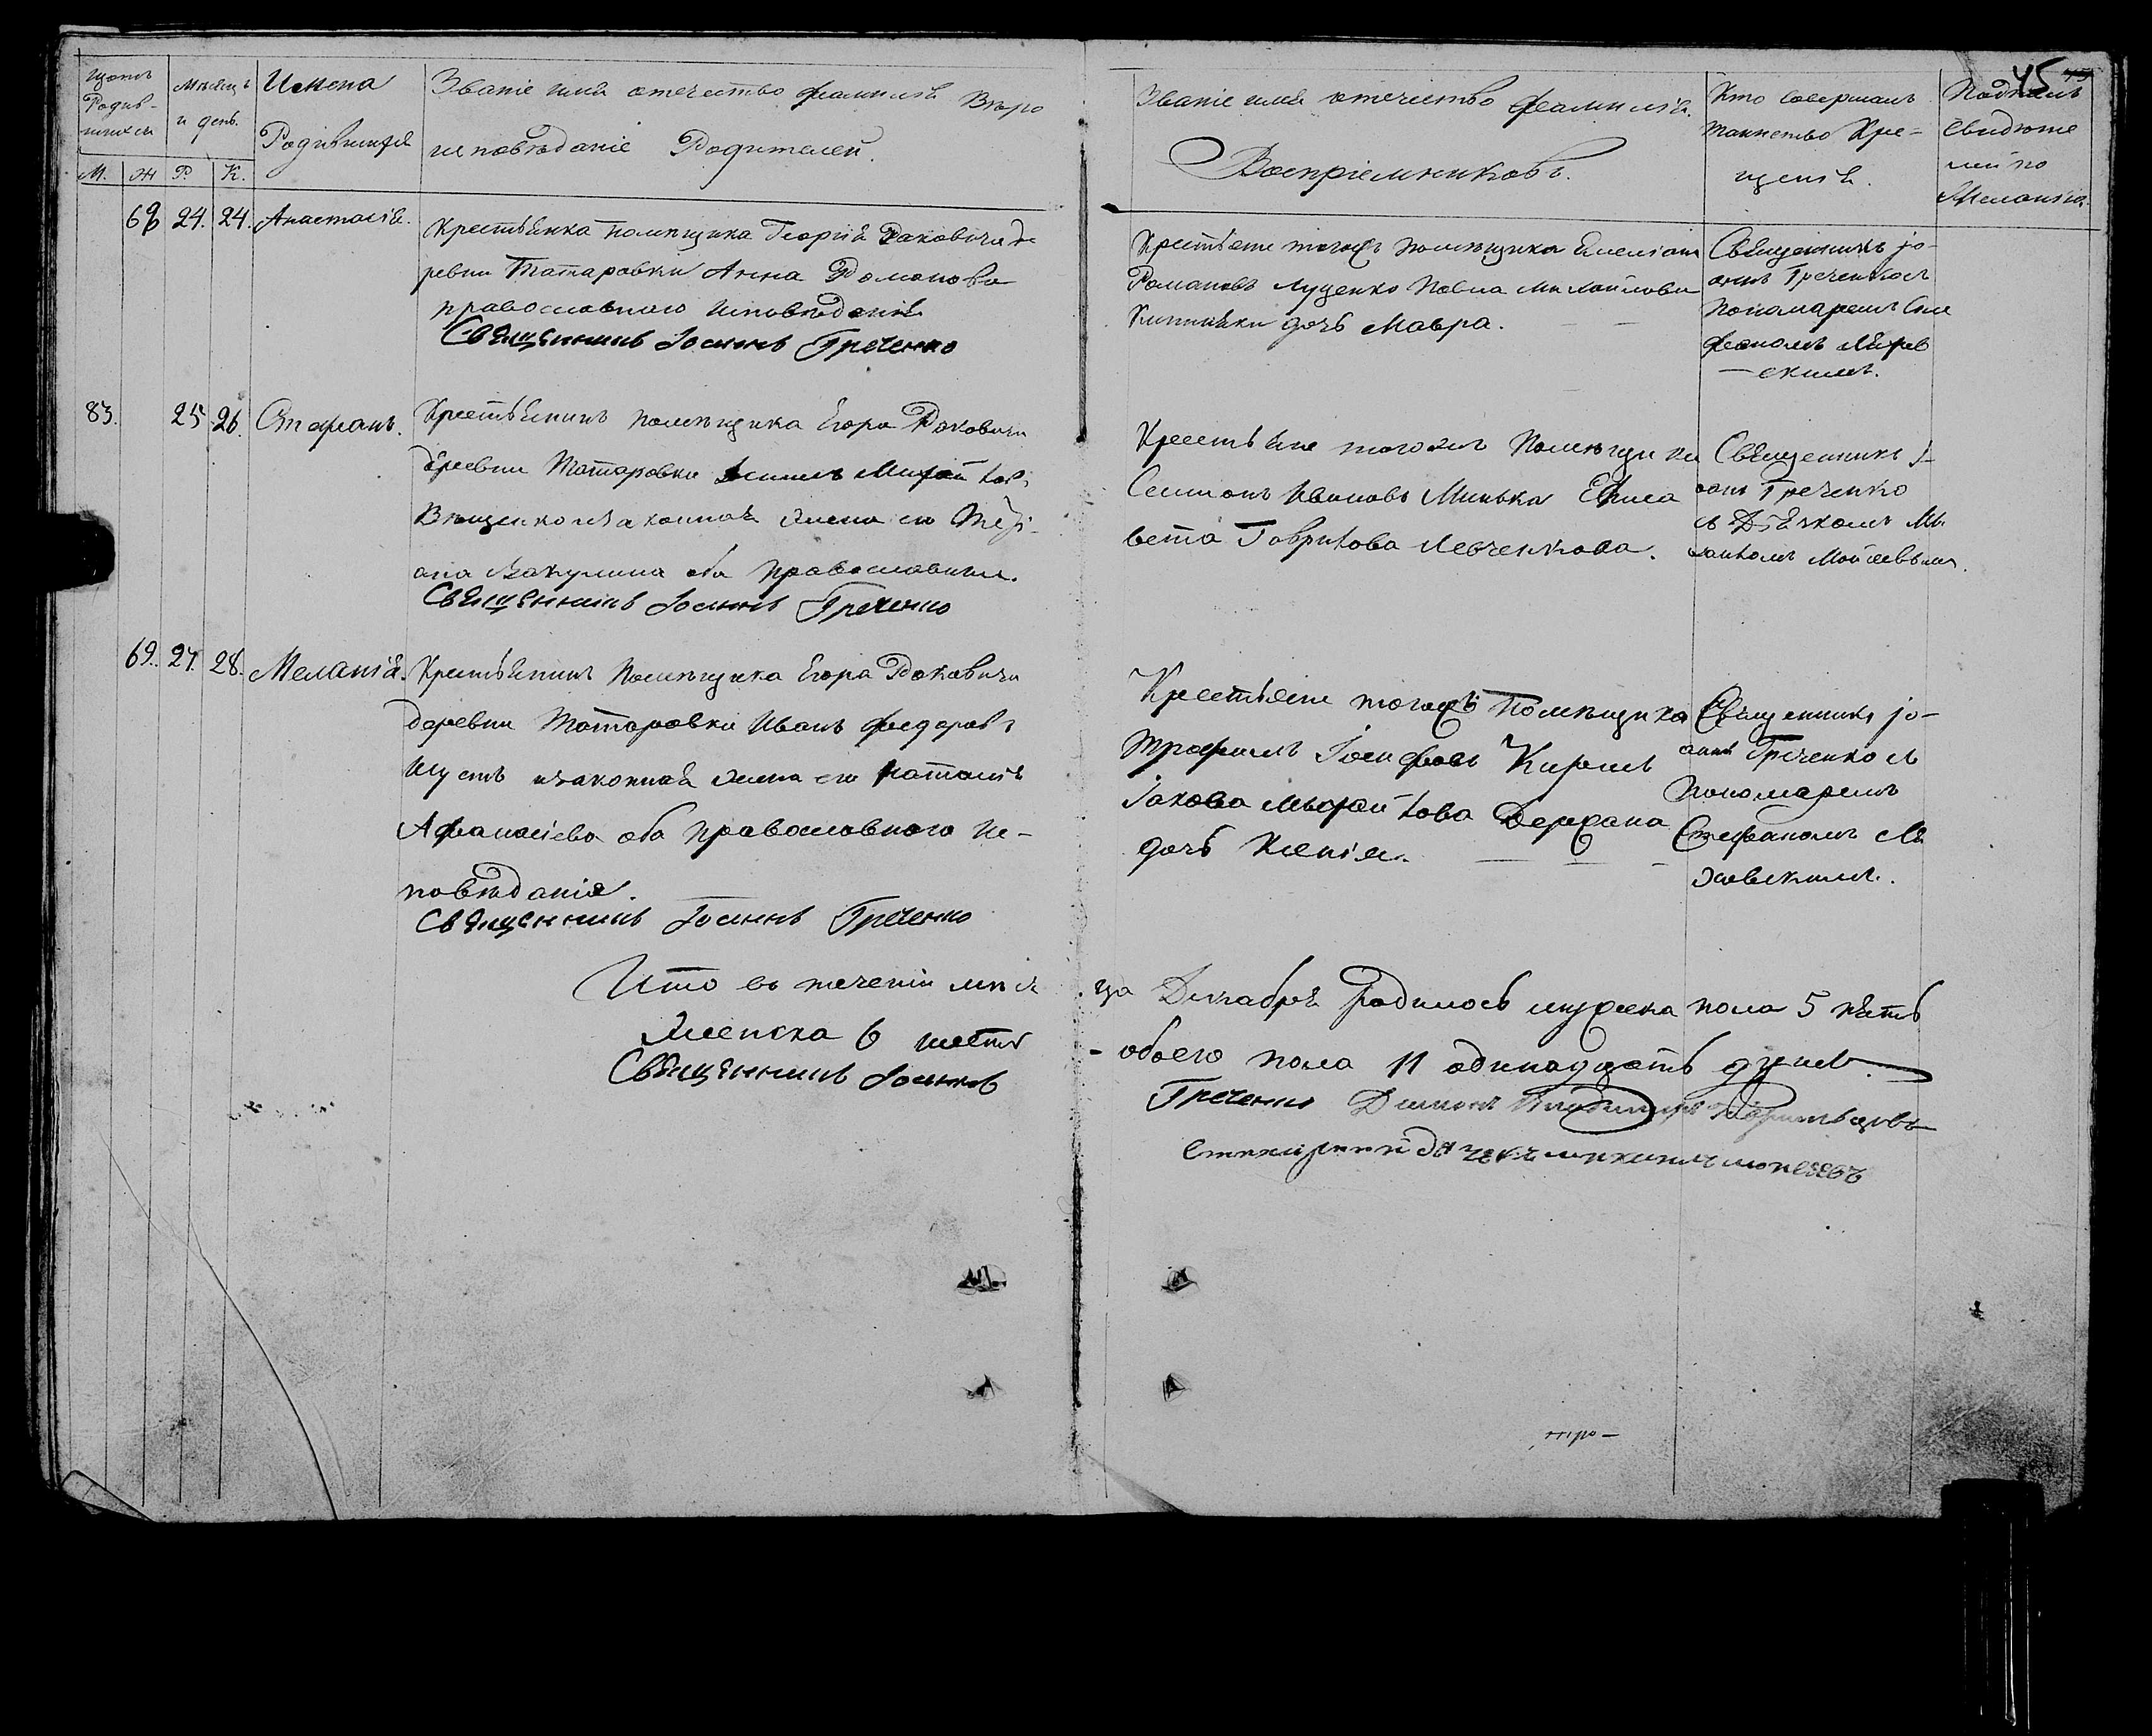 45
Щотъ Родив-шихся
Мѣсяцъ и день.
Имена Родившихся
Званіе имя отечество фамилія Вѣро
исповѣданіе Родителей.
М. Ж Р. К.
Званіе имя отечество фамилія.
Воспріемниковъ.
Кто совершалъ
таинство Кре-
щенія.
свидѣте
лей по
желанію
68 24. 24. Анастасія.
Крестьянка помѣщика Георгія Раковича де
ревни Татаровки Анна Романова
православного исповѣданія
Священникъ Іоаннъ Греченко
Крестьяне тогожъ помѣщика Емеліанъ
Романовъ Луценко Павла Михайлова
дочь Мавра.
Священникъ Іо-
аннъ Греченко съ
Пономаремъ Сте
фаномъ
скимъ.
83. 25. 26. Стефанъ.
Крестьянинъ помѣщика Егора Раковича
деревни Татаровки
жена его
Вакулина оба православныи.
Священникъ Іоаннъ Греченко
Крестьяне тогожъ Помѣщика
Семионъ Ивановъ Минька Елиса
вета Гаврилова Левченкова.
Священникъ І-
оанъ Греченко
съ Дьячкомъ Ми
хаиломъ Мойсеевымъ.
69. 27. 28. Меланія.
Крестьянинъ Помѣщика Егора Раковича
деревни Татаровки Иванъ Федоровъ
Шустъ изаконная жена его Наталія
Афанасіева оба православного ис-
повѣданія.
Священникъ Іоаннъ Греченко
Крестьяне тогожъ Помѣщика
Трофимъ Іосифовъ
Іакова Дергана
дочь Ксенія.
Священникъ Іо-
аннъ Греченко съ
Пономаремъ
Стефаномъ
ховскимъ.
Итто въ теченіи мѣся
ца Декабря родилось мужеска пола 5 пять
Женска 6 шесть
- обоего пола 11 одинадцать душъ.
Священникъ Іоаннъ
Греченко Диаконъ
дячекъ михаилъ моисеевъ